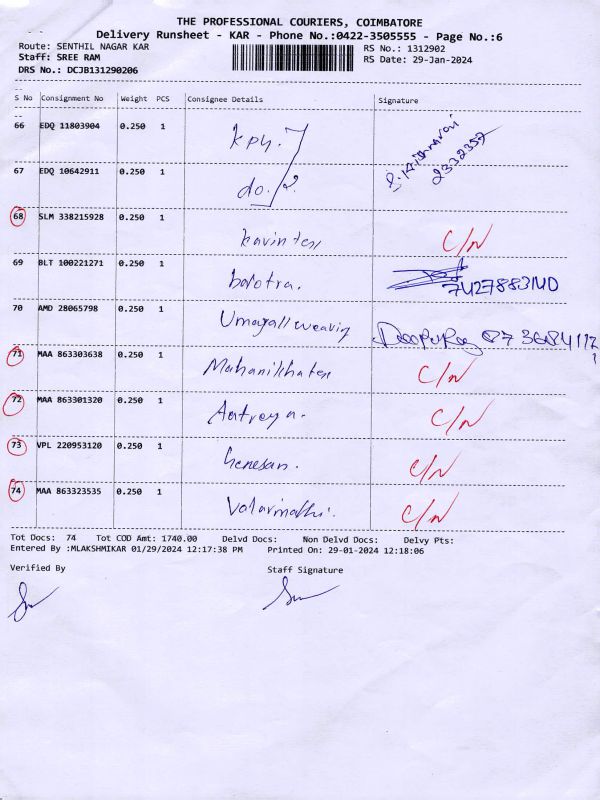 THE PROFESSIONAL COURIERS, COIMBATORE
Delivery Runsheet - KAR - Phone No.:0422-3505555 - Page No.:6
Route: SENTHIL NAGAR KAR
RS No.: 1312902
Staff: SREE RAM
RS Date: 29-Jan-2024
DRS No.: DCJB131290206
S No Consignment No Weight PCS Consignee Details Signature
66 EDQ 11803904 0.250 1 kpy.
2332357
67 EDQ 10642911 0.250 1 do.
68 SLM 338215928 0.250 1 kavin tex C/N
69 BLT 100221271 0.250 1 balotra. 7427883MD
70 AMD 28065798 0.250 1 Umagall weaving
71 MAA 863303638 0.250 1 C/N
72 MAA 863301320 0.250 1 Aatreya. C/N
73 VPL 220953120 0.250 1 Genesan. C/N
74 MAA 863323535 0.250 1 Valarmathi. C/N
Tot Docs: 74 Tot COD Amt: 1740.00 Delvd Docs: Non Delvd Docs: Delvy Pts:
Entered By :MLAKSHMIKAR 01/29/2024 12:17:38 PM Printed On: 29-01-2024 12:18:06
Verified By Staff Signature